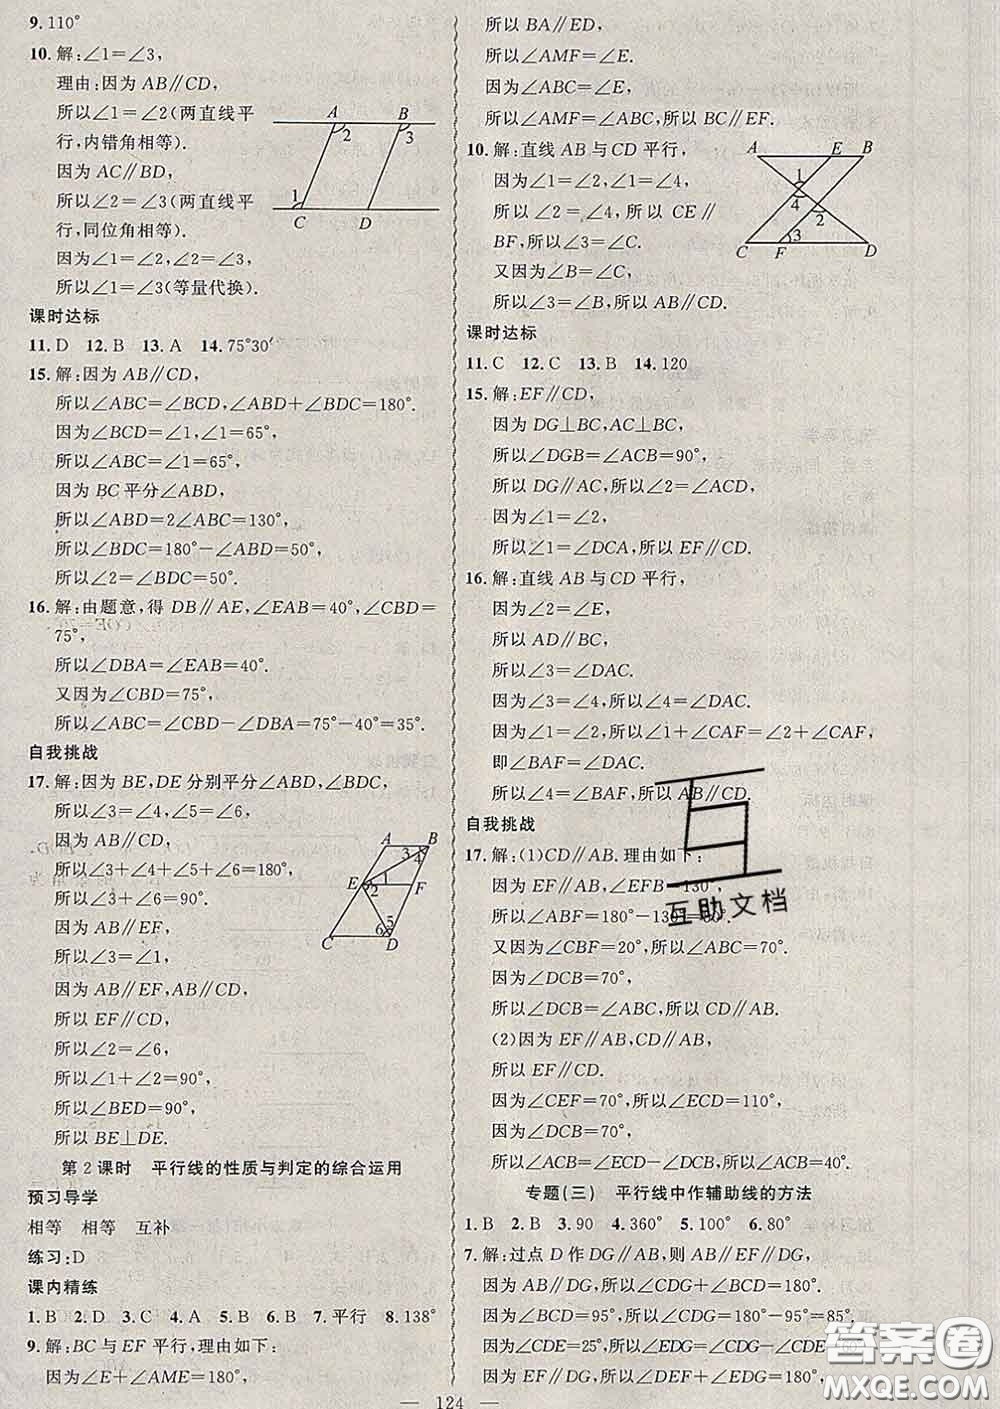 9.110°
10.解:∠1=∠3,
理由:因为 AB∥CD,
所以∠1=∠2(两直线平
行,内错角相等).
因为 AC∥BD,
所以∠2=∠3(两直线平
行,同位角相等).
因为∠1=∠2,∠2=∠3,
所以∠1=∠3(等量代换).
A B 2 3 1 C D
课时达标
11.D 12.B 13.A 14.75°30′
15.解:因为 AB∥CD,
所以∠ABC=∠BCD,∠ABD+∠BDC=180°.
因为∠BCD=∠1,∠1=65°,
所以∠ABC=∠1=65°.
因为 BC 平分∠ABD,
所以∠ABD=2∠ABC=130°,
所以∠BDC=180°-∠ABD=50°,
所以∠2=∠BDC=50°.
16.解:由题意,得 DB∥AE,∠EAB=40°,∠CBD=
75°,
所以∠DBA=∠EAB=40°.
又因为∠CBD=75°,
所以∠ABC=∠CBD-∠DBA=75°-40°=35°.
自我挑战
17.解:因为 BE,DE 分别平分∠ABD,∠BDC,
所以∠3=∠4,∠5=∠6,
因为 AB∥CD,
所以∠3+∠4+∠5+∠6=180°,
所以∠3+∠6=90°.
因为 AB∥EF,
所以∠3=∠1,
因为 AB∥EF,AB∥CD,
所以 EF∥CD,
所以∠2=∠6,
所以∠1+∠2=90°,
所以∠BED=90°,
所以 BE⊥DE.
A B 3 4 E 1 2 F 5 6 C D
第 2 课时 平行线的性质与判定的综合运用
预习导学
相等 相等 互补
练习:D
课内精练
1.B 2.D 3.C 4.A 5.B 6.B 7.平行 8.138°
9.解:BC 与 EF 平行,理由如下:
因为∠E+∠AME=180°,
所以 BA∥ED,
所以∠AMF=∠E.
因为∠ABC=∠E,
所以∠AMF=∠ABC,所以 BC∥EF.
10.解:直线 AB 与 CD 平行,
因为∠1=∠2,∠1=∠4,
所以∠2=∠4,所以 CE∥
BF,所以∠3=∠C.
又因为∠B=∠C,
所以∠3=∠B,所以 AB∥CD.
A E B 1 4 2 3 C F D
课时达标
11.C 12.C 13.B 14.120
15.解:EF∥CD,
因为 DG⊥BC,AC⊥BC,
所以∠DGB=∠ACB=90°,
所以 DG∥AC,所以∠2=∠ACD,
因为∠1=∠2,
所以∠1=∠DCA,所以 EF∥CD.
16.解:直线 AB 与 CD 平行,
因为∠2=∠E,
所以 AD∥BC,
所以∠3=∠DAC.
因为∠3=∠4,所以∠4=∠DAC.
因为∠1=∠2,所以∠1+∠CAF=∠2+∠CAF,
即∠BAF=∠DAC.
所以∠4=∠BAF,所以 AB∥CD.
自我挑战
17.解:(1)CD∥AB.理由如下:
因为 EF∥AB,∠EFB=130°,
所以∠ABF=180°-130°=50°.
又因为∠CBF=20°,所以∠ABC=70°.
因为∠DCB=70°,
所以∠DCB=∠ABC,所以 CD∥AB.
(2)因为 EF∥AB,CD∥AB,
所以 EF∥CD.
因为∠CEF=70°,所以∠ECD=110°,
因为∠DCB=70°,
所以∠ACB=∠ECD-∠DCB=40°.
专题(三) 平行线中作辅助线的方法
1.B 2.B 3.90 4.360° 5.100° 6.80°
7.解:过点 D 作 DG∥AB,则 AB∥EF∥DG,
因为 AB∥DG,所以∠CDG+∠BCD=180°.
因为∠BCD=95°,所以∠CDG=180°-95°=85°.
因为∠CDE=25°,所以∠EDG=∠CDG-∠CDE=60°.
因为 EF∥DG,所以∠DEF+∠EDG=180°,
互助文档
答案圈
MXQE.COM
— 124 —